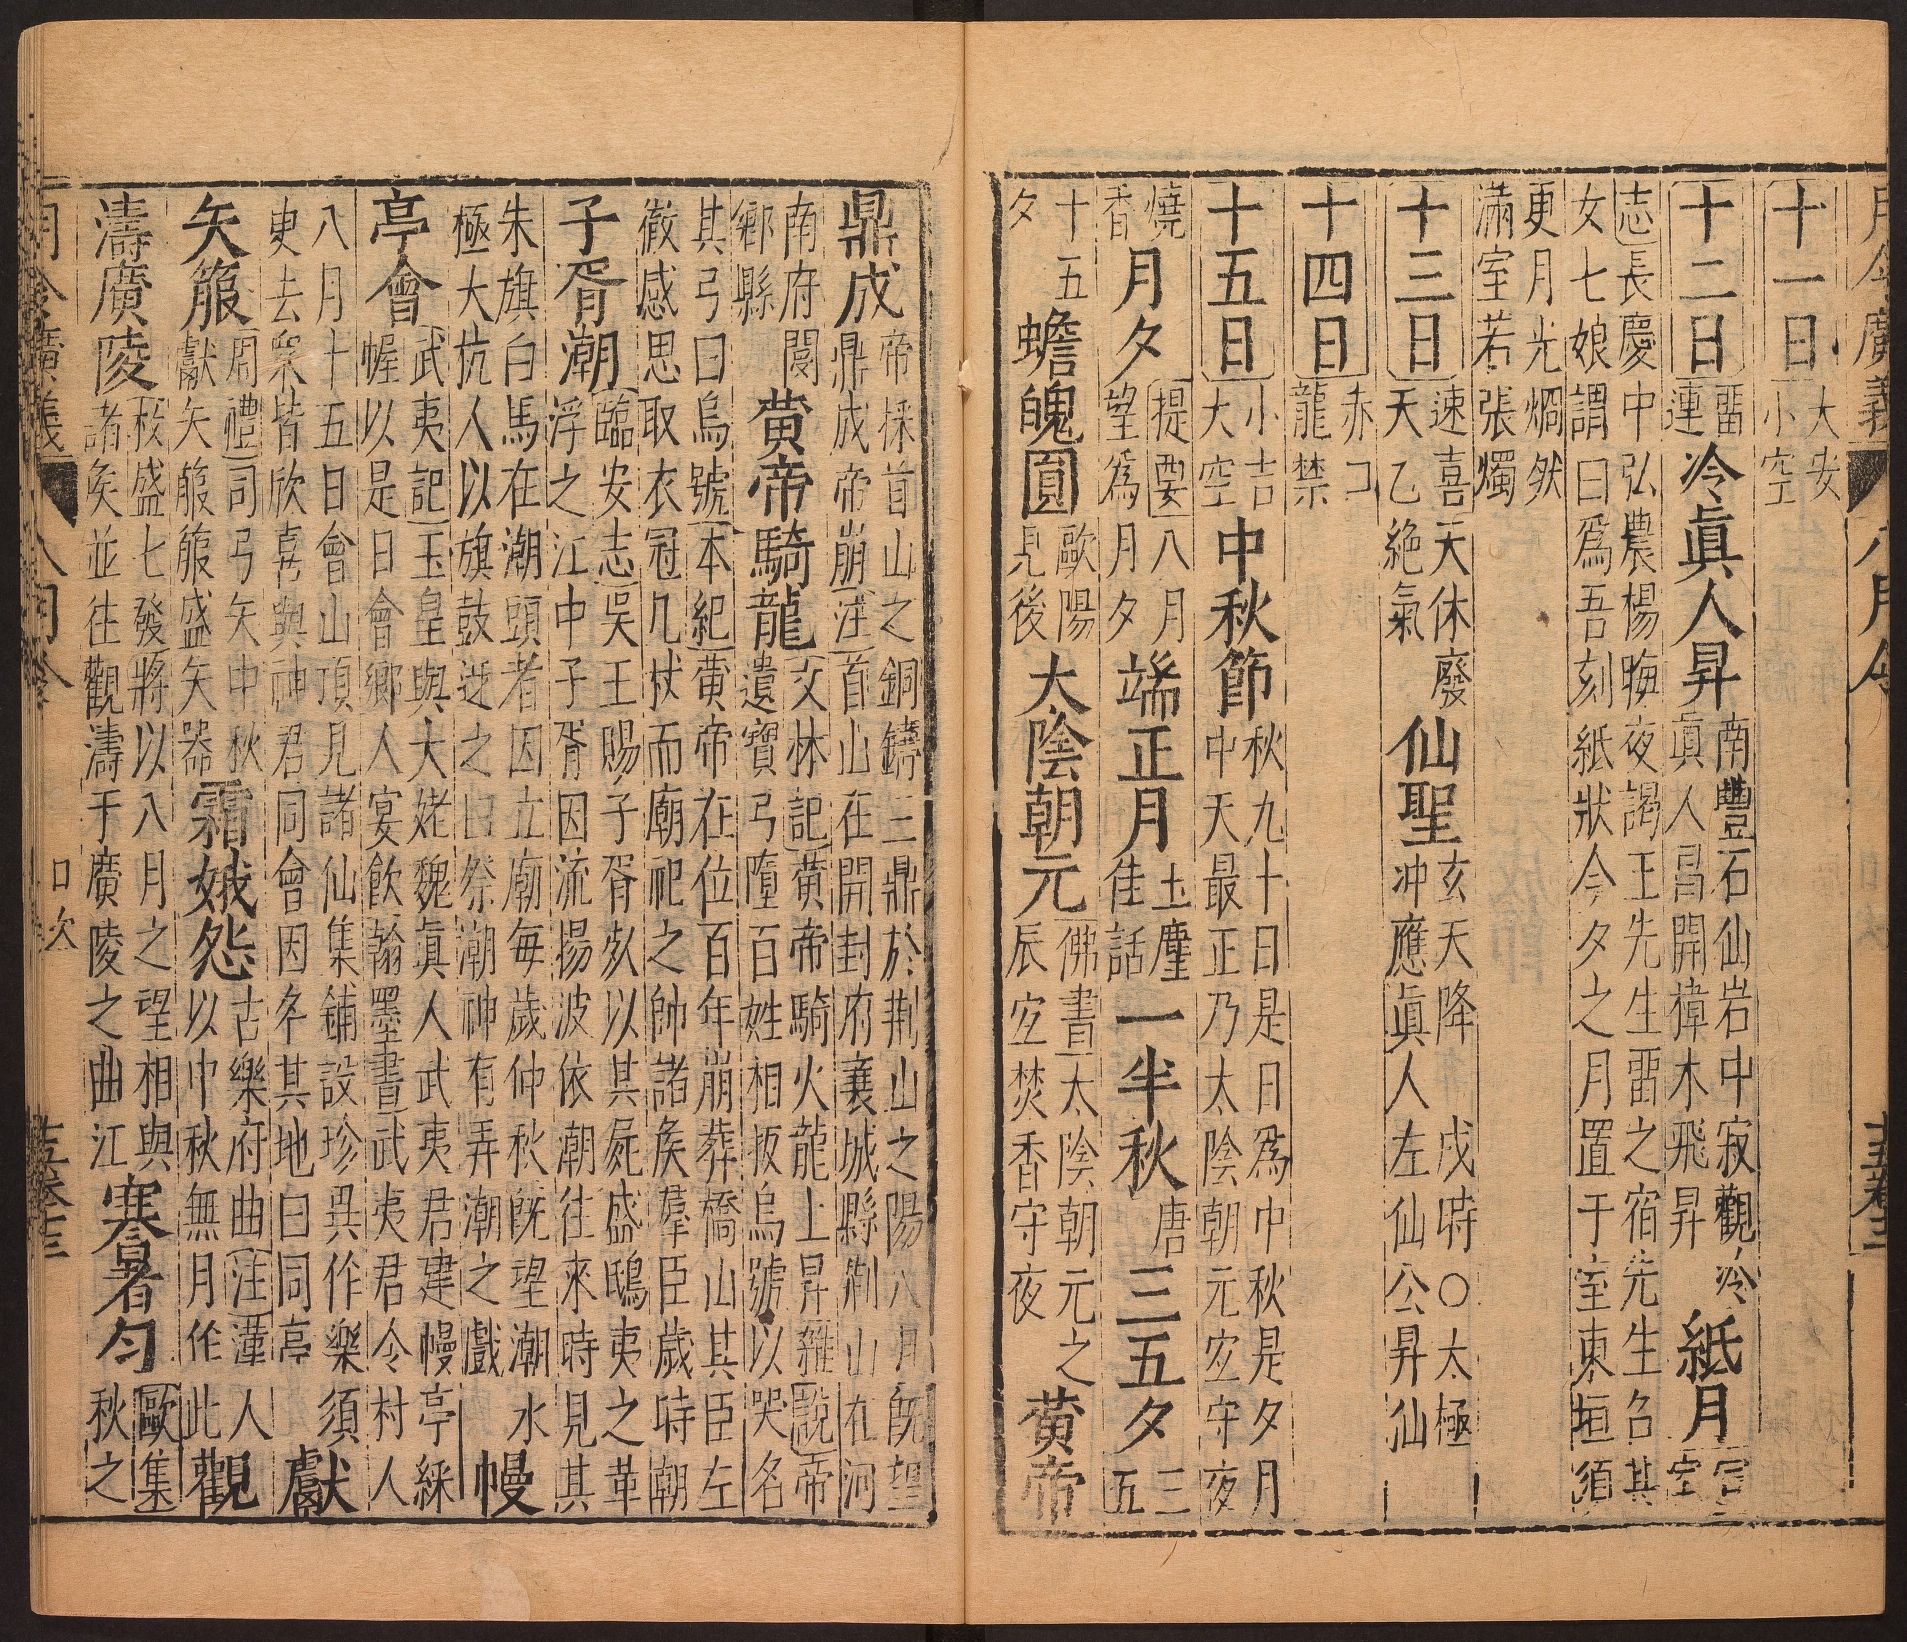 月令廣義 八月令
十一日 大安
小空
十二日 雷
連 冷眞人昇 南豐石仙岩中寂觀冷
眞人昌開樟木飛昇 紙月 宣
室
志長慶中弘農楊晦夜謁王先生雷之宿先生名其
女七娘謂曰爲吾刻紙狀今夕之月置于室東垣須
更月光烱然
滿室若張燭
十三日 速喜天休廢
天乙絕氣 仙聖 玄天降 戌時○太極
冲應眞人左仙公昇仙
十四日 赤口
龍禁
十五日 小吉
大空 中秋節 秋九十日是日爲中秋是夕月
中天最正乃太陰朝元宜守夜
燒
香 月夕 提要八月
望爲月夕 端正月 士塵
佳話 一半秋 唐 三五夕 三
五
十五
夕 蟾魄圓 歐陽
見後 太陰朝元 佛書太陰朝元之
辰宜焚香守夜 黄帝
鼎成 帝採首山之銅鑄三鼎於荆山之陽八月既望
鼎成帝崩注首山在開封府襄城縣荆山在河
南府閿
鄉縣 黄帝騎龍 文林記黄帝騎火龍上昇雜說帝
遺寶弓墮百姓相扳烏號以哭名
其弓曰烏號本紀黄帝在位百年崩葬橋山其臣左
徹感思取衣冠几杖而廟祀之帥諸侯羣臣歲時朝
子胥潮 臨安志吳王賜子胥死以其屍盛鴟夷之革
浮之江中子胥因流揚波依潮往來時見其
朱旗白馬在潮頭者因立廟每歲仲秋既望潮水
極大杭人以旗鼓迓之曰祭潮神有弄潮之戲 幔
亭會 武夷記玉皇與大姥魏眞人武夷君建幔亭綵
幄以是日會鄉人宴飲翰墨書武夷君令村人
八月十五日會山頂見諸仙集鋪設珍異作樂須
更去衆皆欣喜與神君同會因名其地曰同亭 獻
矢箙 周禮司弓矢中秋
獻矢箙箙盛矢器 霜娥怨 古樂府曲注漢人
以中秋無月作此 觀
濤廣陵 枚盛七發將以八月之望相與
諸侯並往觀濤于廣陵之曲江 寒暑勻 歐集
秋之